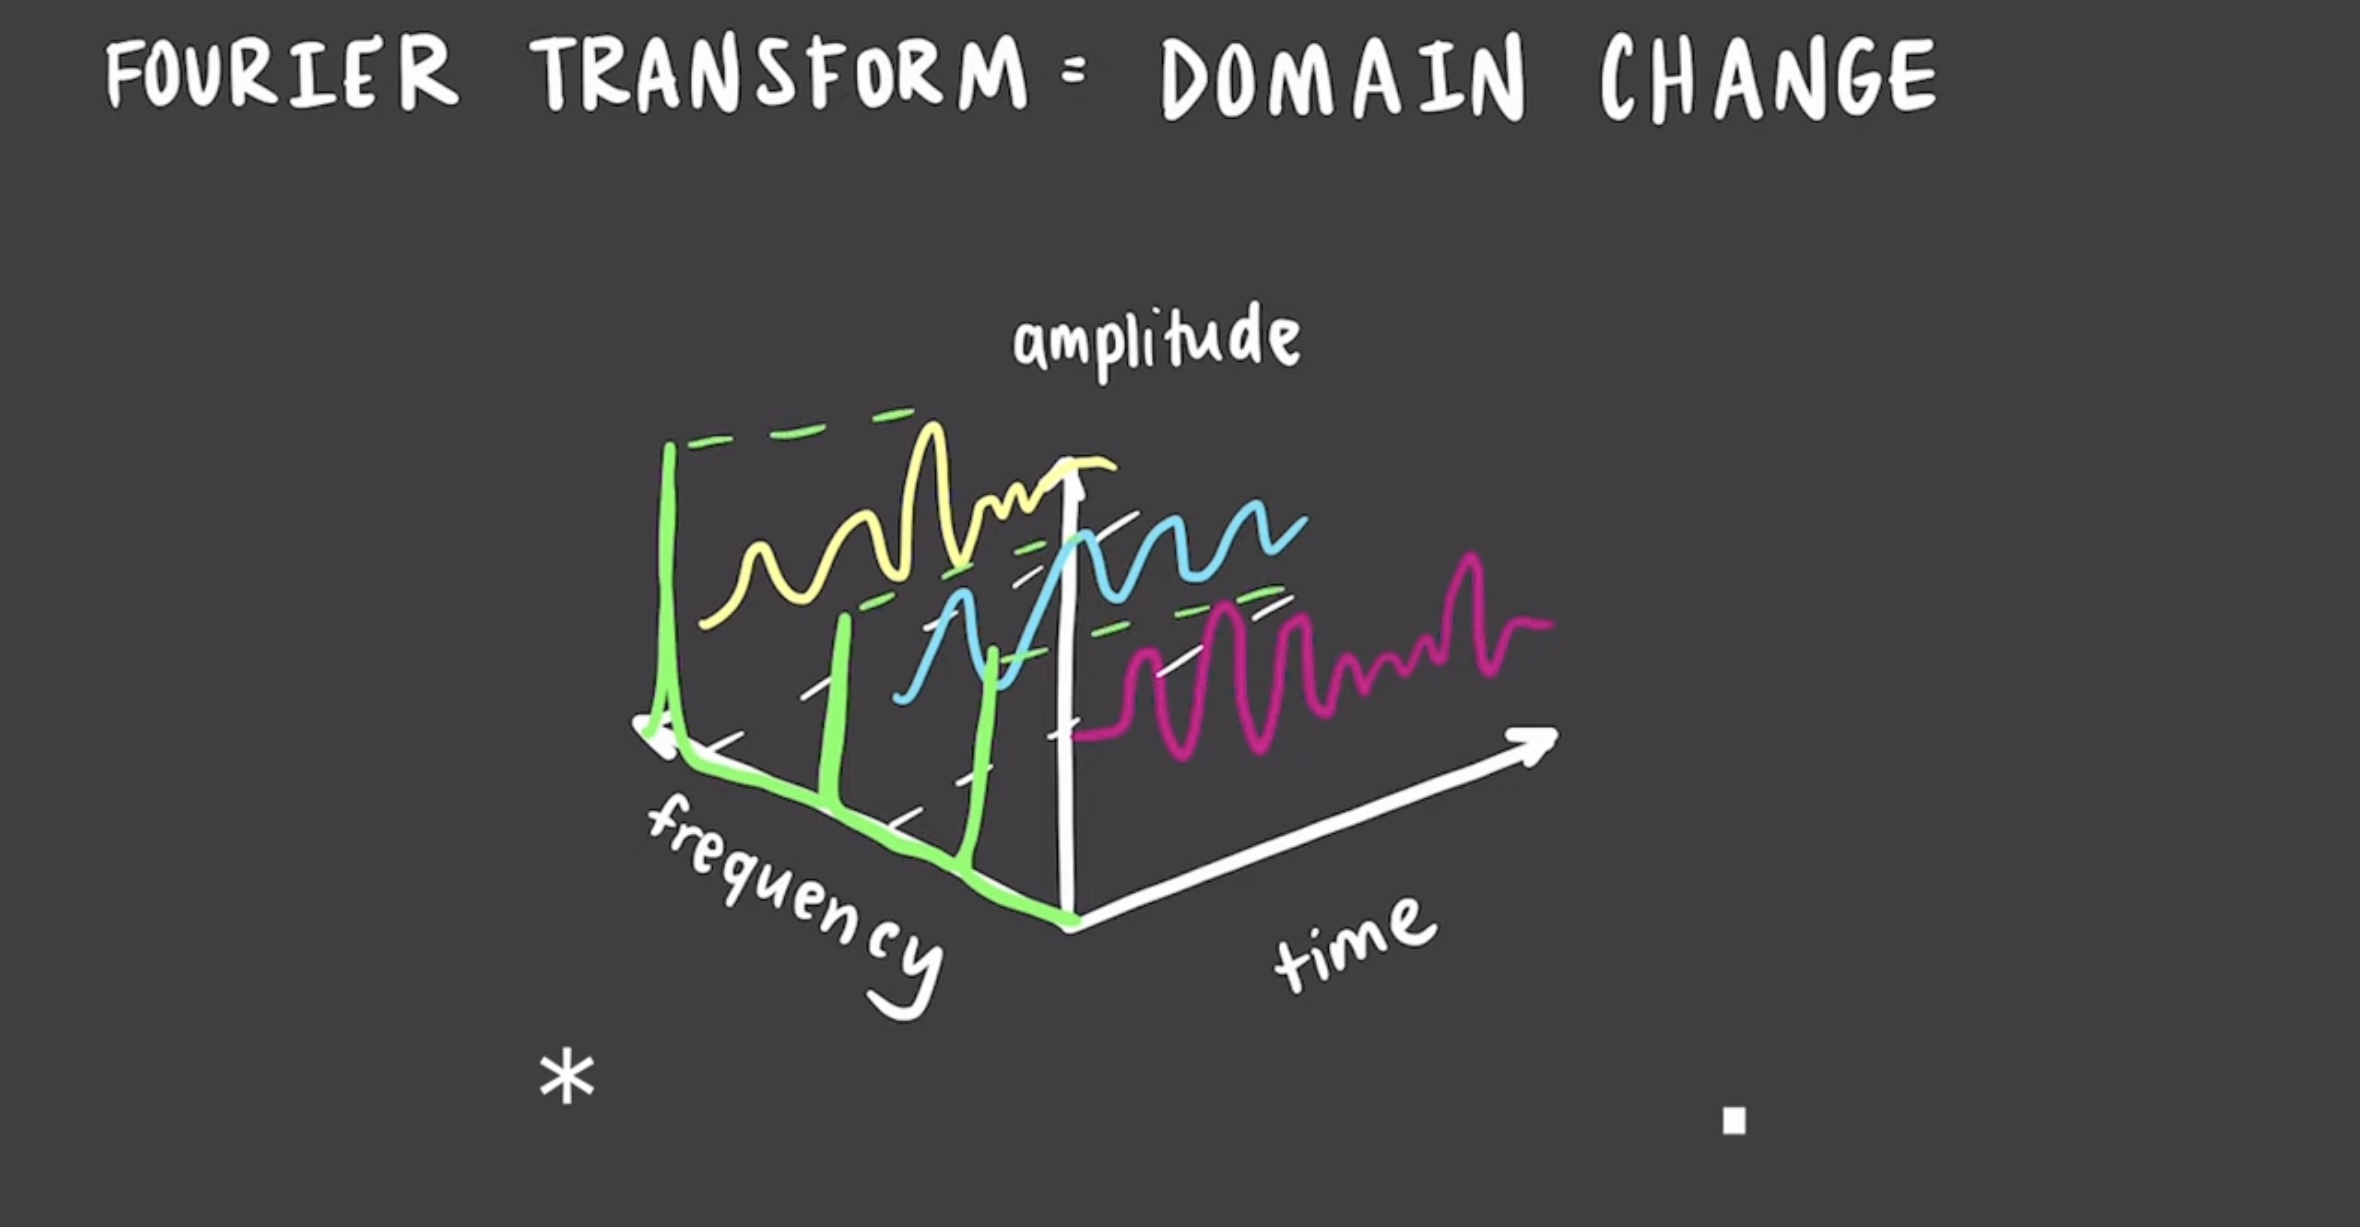 FOURIER TRANSFORM = DOMAIN CHANGE
amplitude
frequency
time
*
.